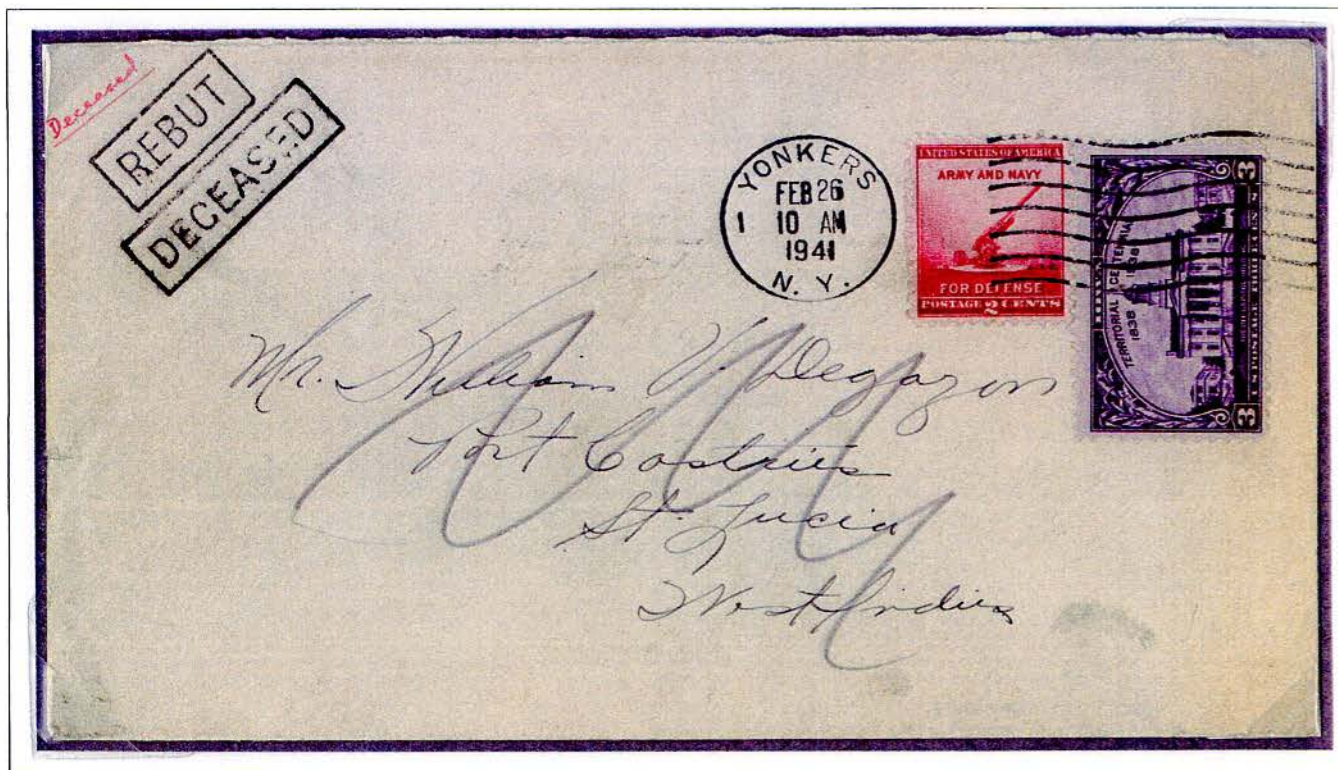 Deceased
REBUT
DECEASED
YONKERS
FEB 26
1 10 AM
1941
N. Y.
UNITED STATES OF AMERICA
ARMY AND NAVY
FOR DEFENSE
POSTAGE 2 CENTS
IOWA
TERRITORIAL CENTENNIAL
1838 1938
3 U.S. POSTAGE THREE CENTS 3
Mr. William V. Degazon
Port Castries
St. Lucia
West Indies